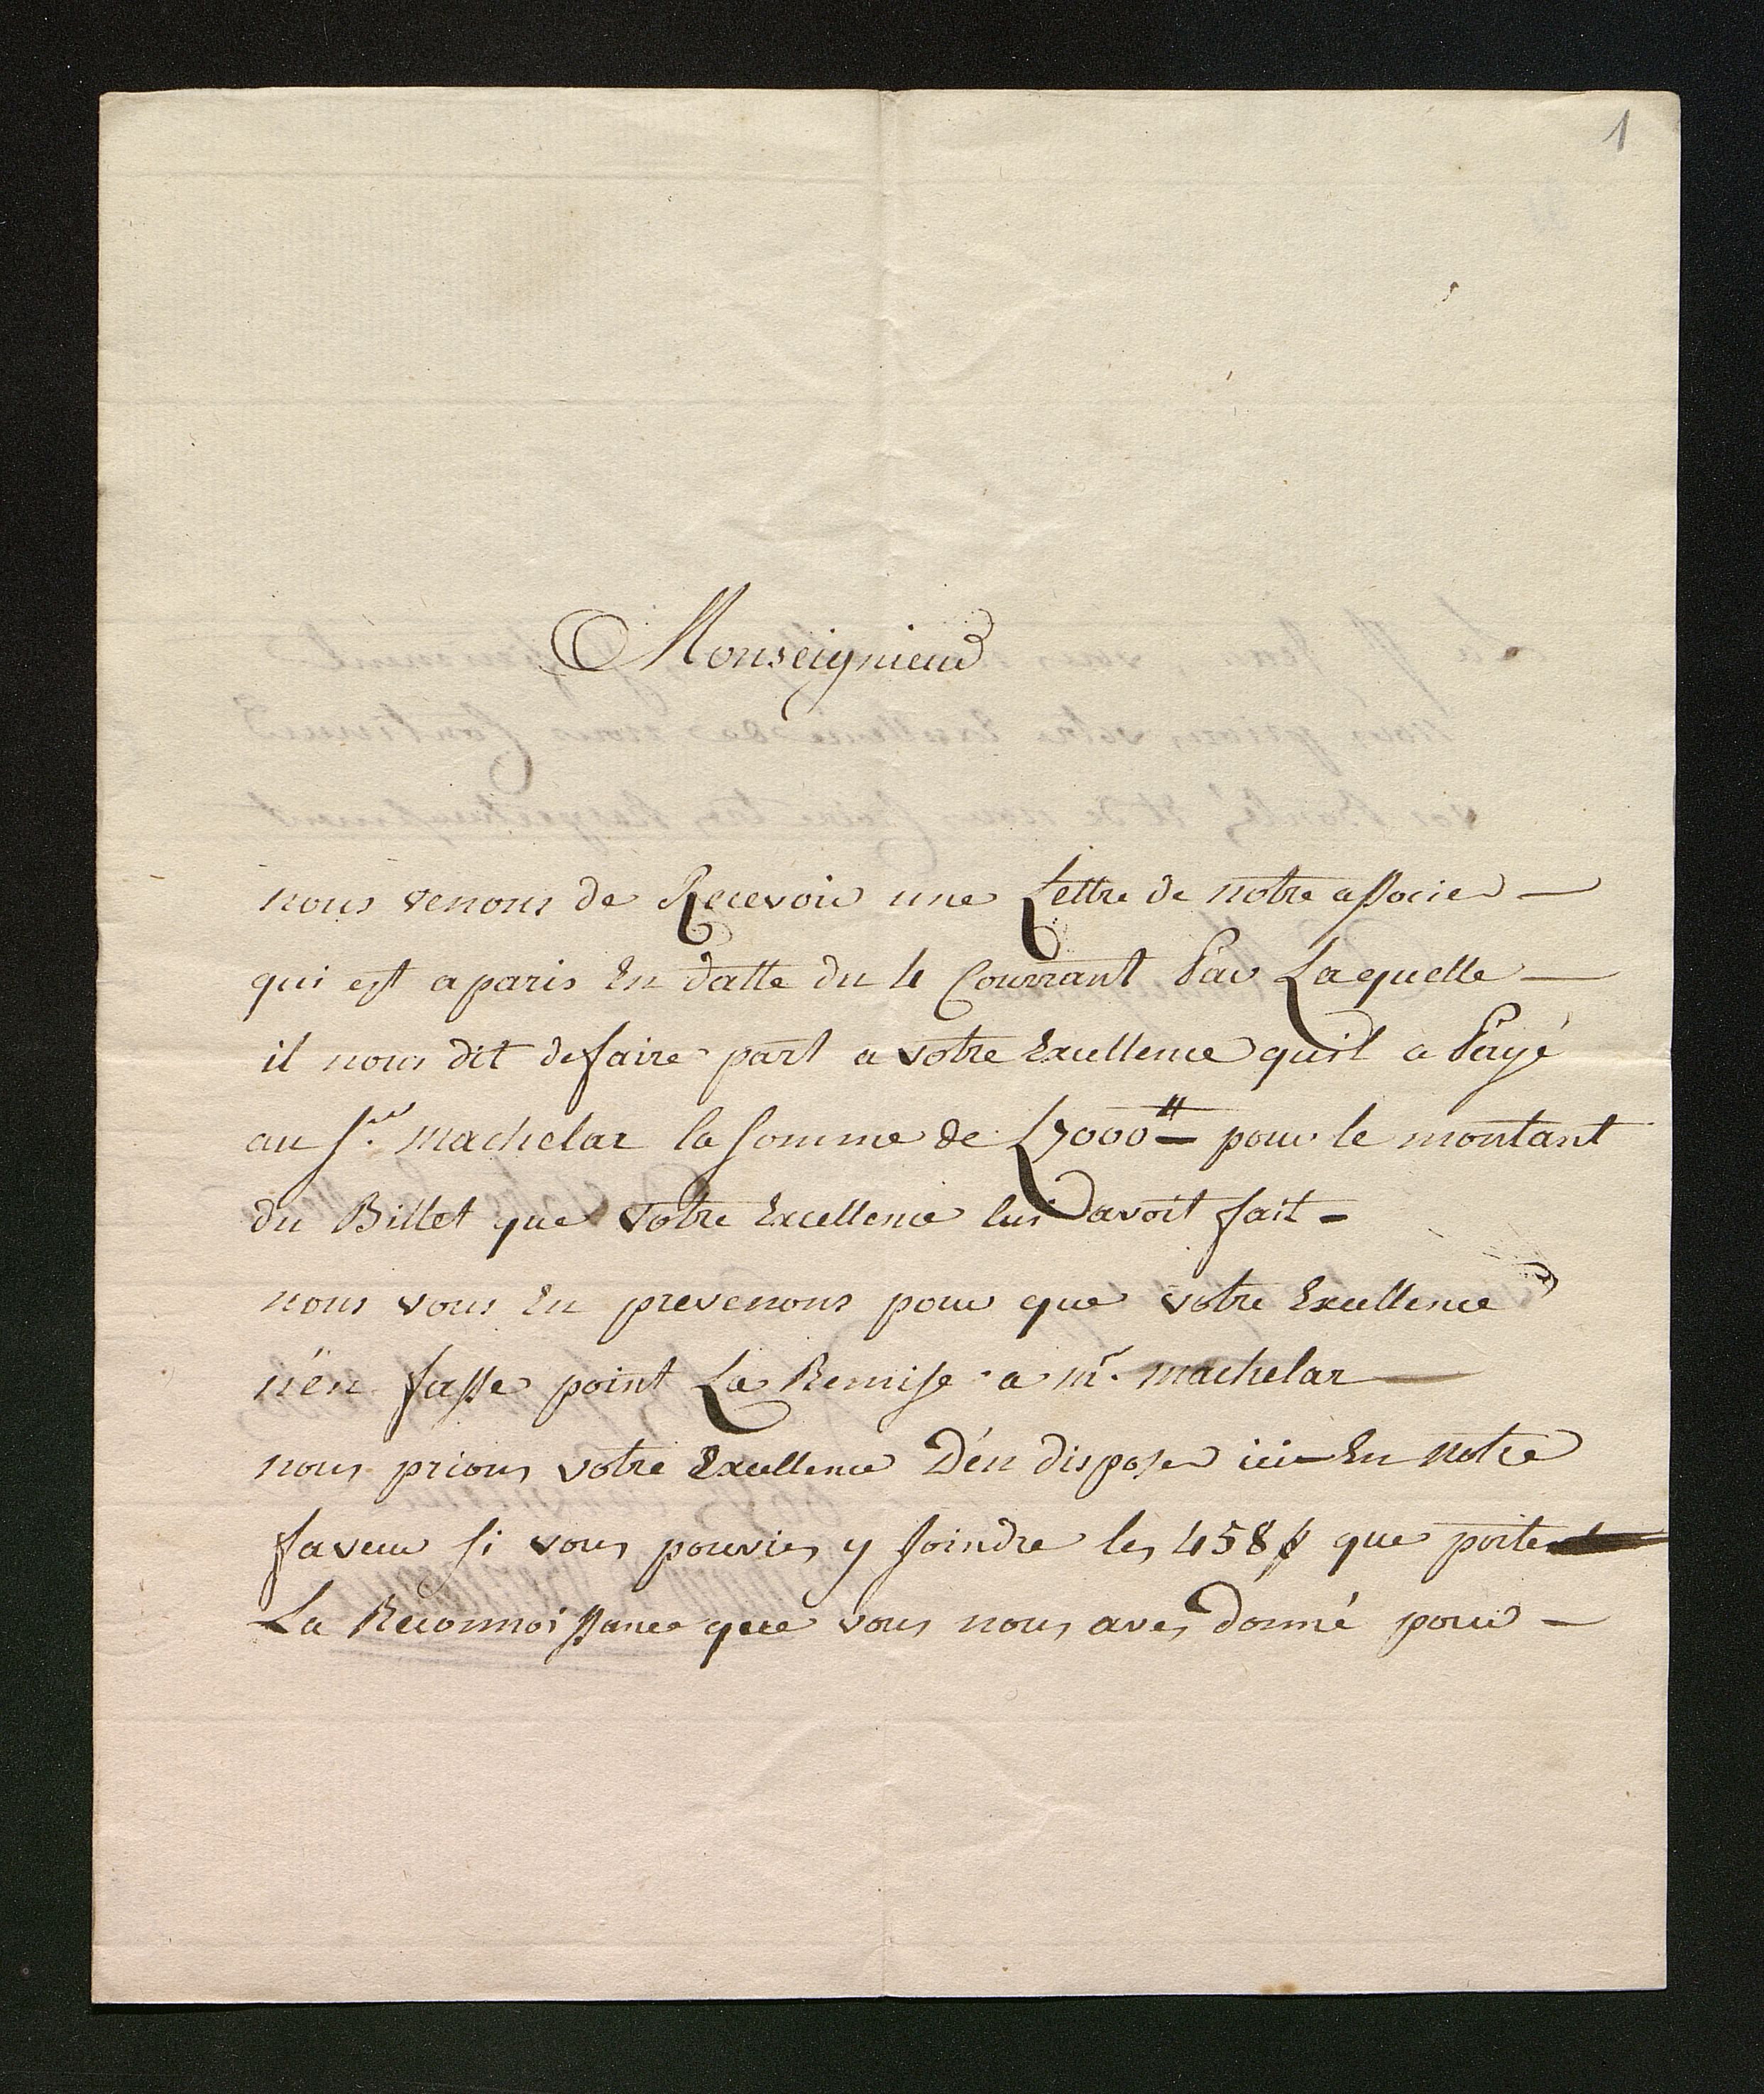 1
Monseignieur
nous venons de Recevoir une Lettre de notre associer —
qui est a paris En datte du 4 Courrant Par Laquelle —
il nous dit de faire part a votre Excellence qu'il a Payé
au Sr. machelar la somme de L7000 ₶ — pour le montant
du Billet que Votre Excellence lui avoit fait -
nous vous En prevenons pour que votre Excellence
n'én fasse point La Remise a mr. machelar —
nous prions votre Excellence D'én disposer ici En notre
faveur si vous pouvies y Joindre les 458 ƒ que porte
La Reconnoissance que vous nous aves donné pour —